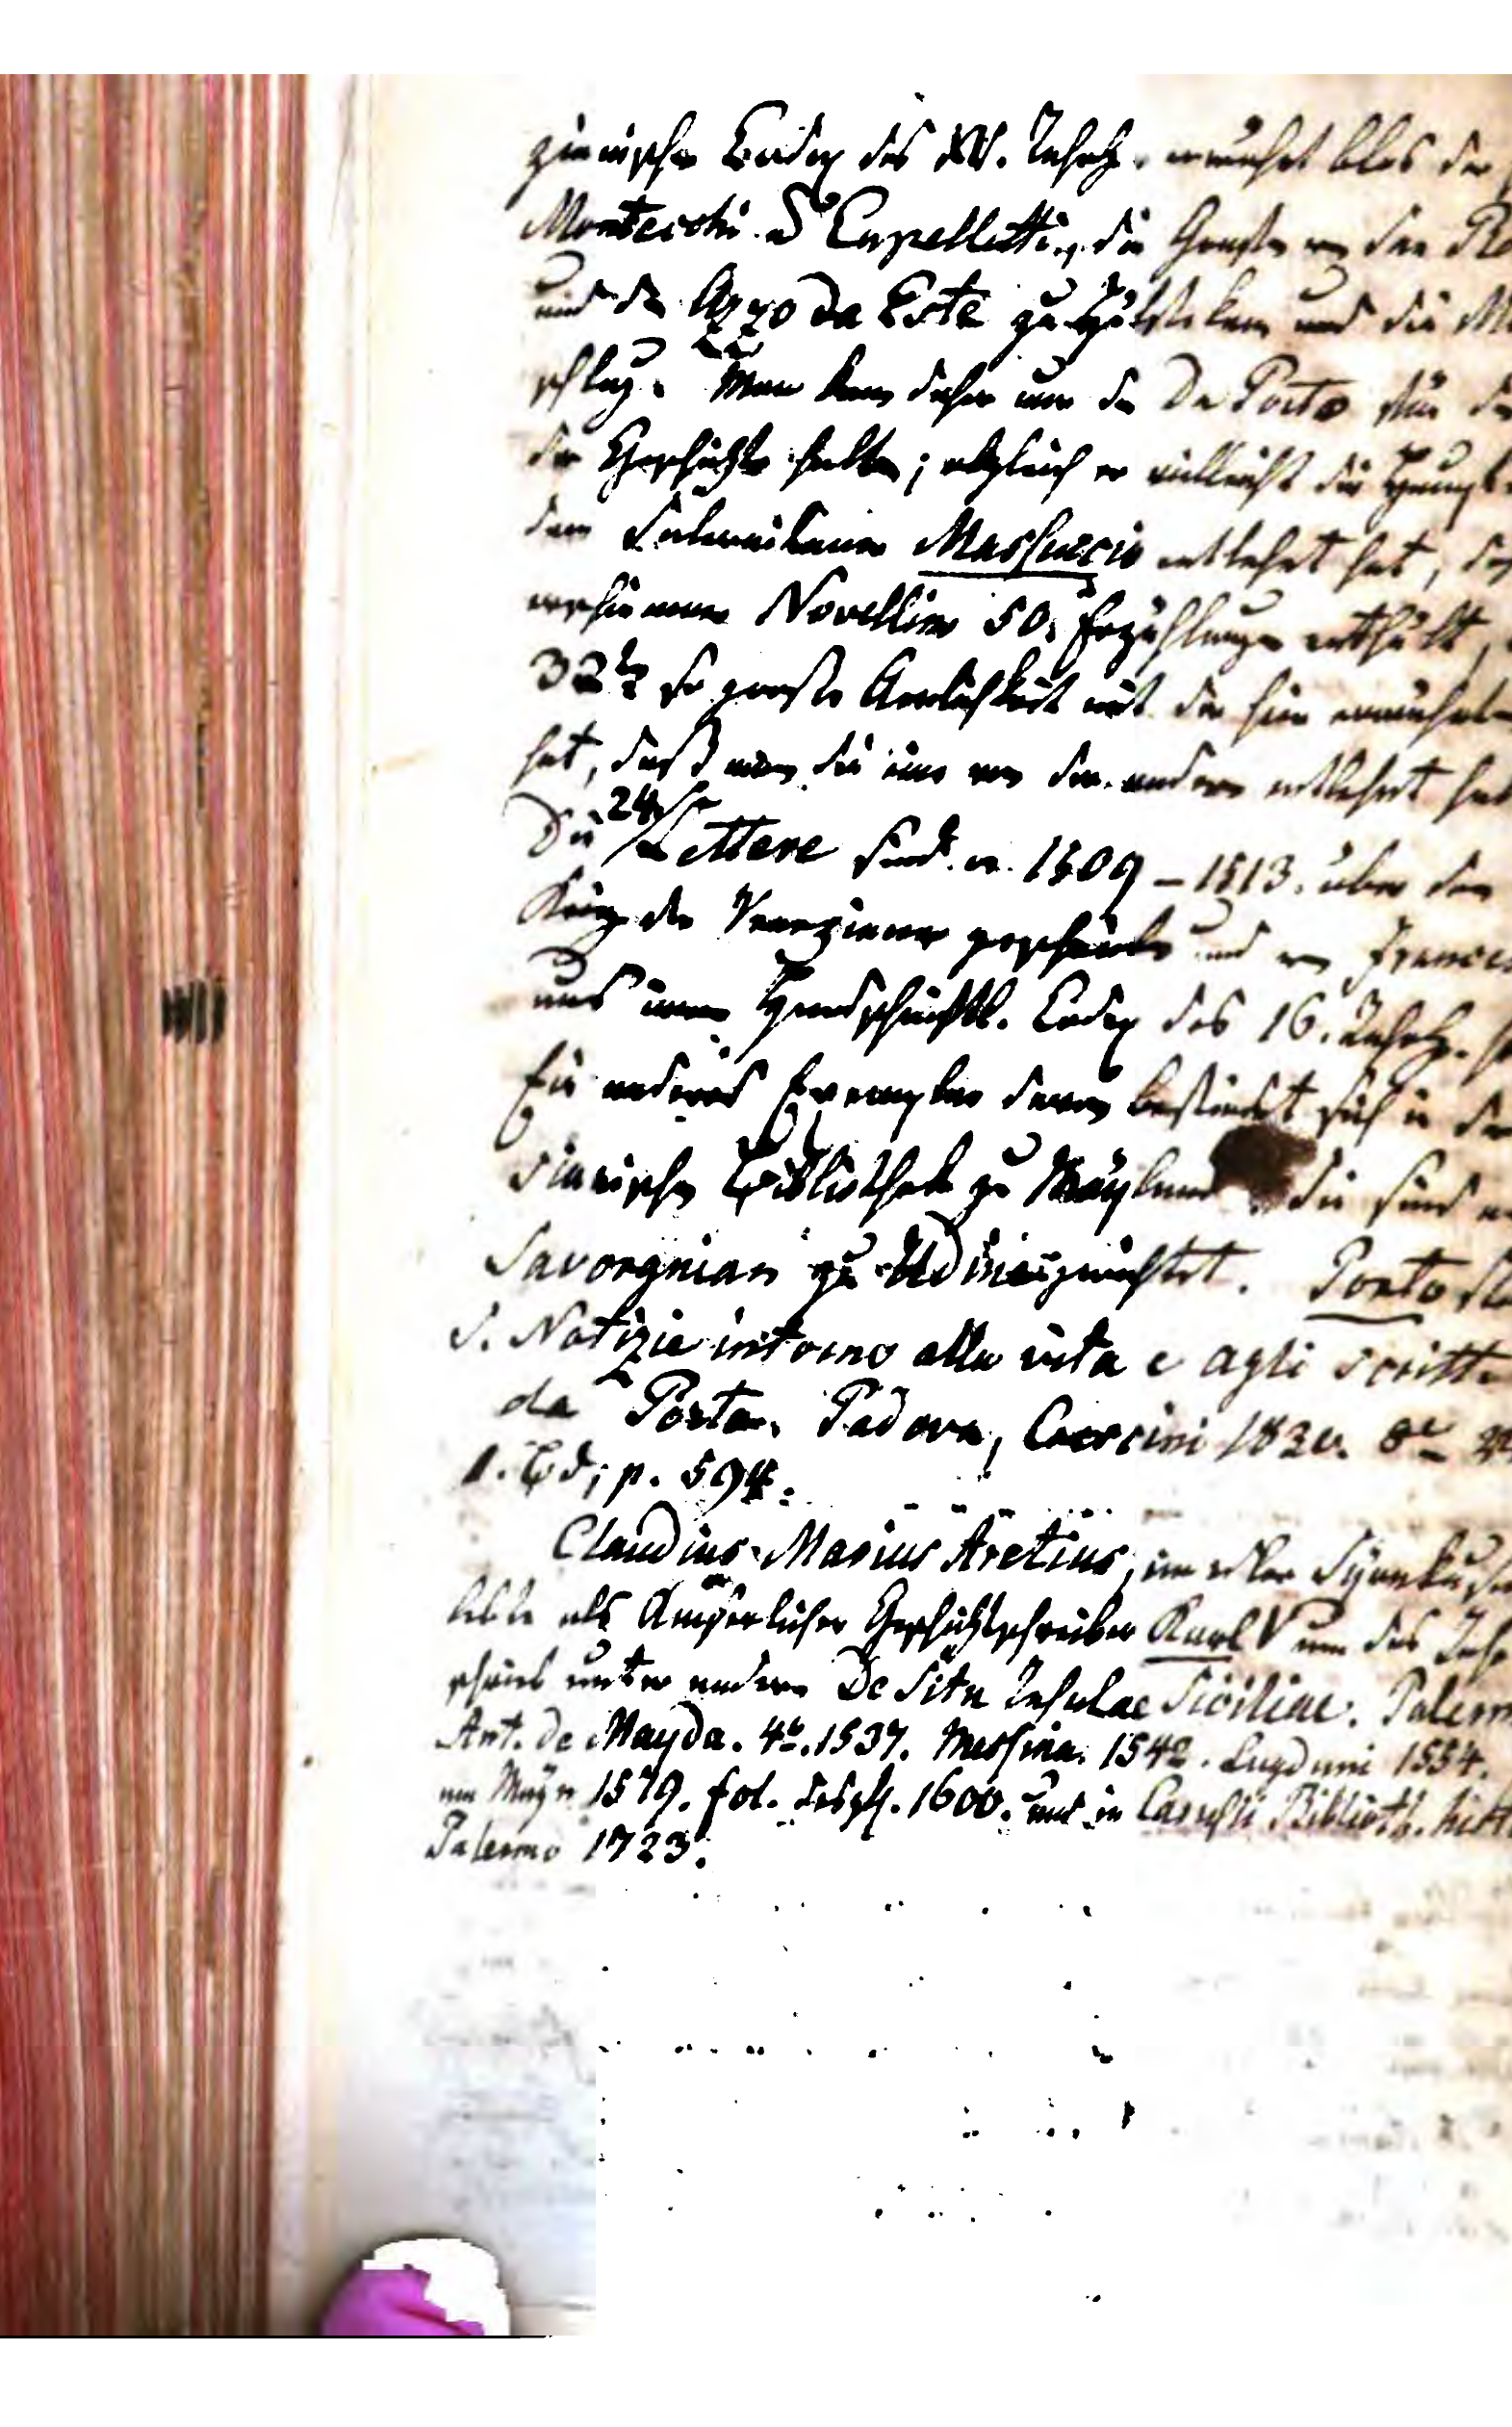 zianischer Codex des XV. Jahrh. erwähnt blos der
Montecchi u. Capelletti, die Grafen von San
und da Azzo da Este zu Hülfe kam und die
schlug. Man kann daher nur den Da Porto für den
der Geschichte halten; obgleich er vielleicht die Haupt
dem Salernitaner Massuccio entlehnt hat, dessen
erschienener Novellino 50. Erzählungen enthält,
32te so große Aenlichkeit mit der hier erwähnten
hat, daß man die eine von der andern entlehnt
Die 24 Lettere sind v. 1509 – 1513. über den
Krieg der Venezianer geschrieben und von Frances
aus einem Handschriftl. Codex des 16. Jahrh.
Ein anderes Exemplar davon befindet sich in der
sianischen Bibliothek zu Mayland die sind an
Savorgnian zu Udine gerichtet. Porto
S. Notizie intorno alla vita e agli scritti
da Porto. Padova, Crescini 1830. 8e
1. Bd; p. 594.
Claudius Marius Aretius, ein edler Syrakusaner
lebte als Kayserlicher Geschichtschreiber Karl V um das Jahr
schrieb unter andern De Situ Insulae Siciliae. Palermo
Ant. de Mayda. 4to. 1537. Messina. 1542. Lugduni 1554.
1579. fol. desgl. 1600. und in Carusii Biblioth. hist
Palermo 1723.